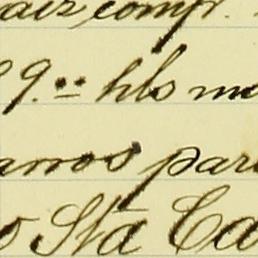 aiz compr.
9.00 hls me
anos par
o Sta Ca